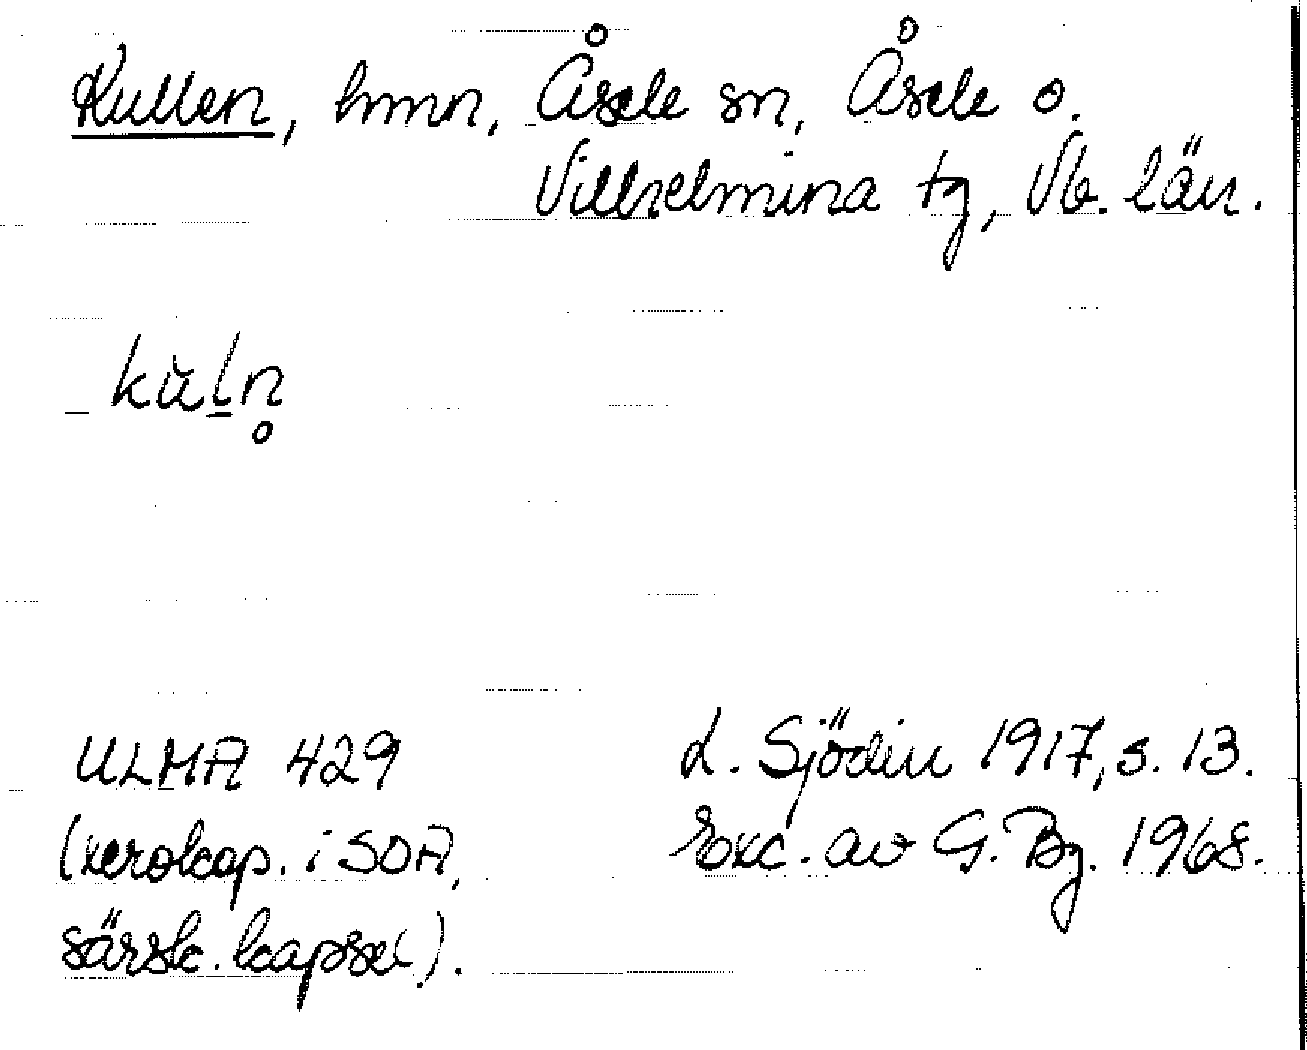 Kullen, hmn, Åsele sn, Åsele o.
Vilhelmina tg, Vb. län.
kùl̲n̥
ULMA 429
(xerokop. i SOA,
särsk. kapsel).
L. Sjödin 1917, s. 13.
Exc. av G. Bg. 1968.